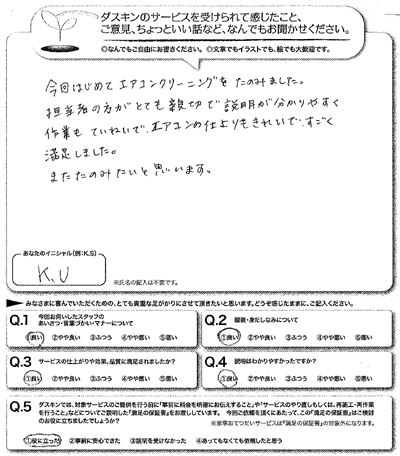 ダスキンのサービスを受けられて感じたこと、
ご意見、ちょっといい話など、なんでもお聞かせください。
◎なんでもご自由にお書きください。◎文章でもイラストでも、絵でも大歓迎です。
今回はじめてエアコンクリーニングをたのみました。
担当者の方がとても親切で説明が分かりやすく
作業もていねいで、エアコンの仕上りもきれいで、すごく
満足しました。
またたのみたいと思います。
あなたのイニシャル(例:K.S)
K.U
※氏名の記入は不要です。
みなさまに喜んでいただくための、とても貴重な足がかりにさせて頂きたいと思います。どうぞ感じたままに、ご記入ください。
Q.1 今回お伺いしたスタッフの
あいさつ・言葉づかい・マナーについて
①良い ②やや良い ③ふつう ④やや悪い ⑤悪い
Q.2 服装・身だしなみについて
①良い ②やや良い ③ふつう ④やや悪い ⑤悪い
Q.3 サービスの仕上がりや効果、品質に満足されましたか?
①良い ②やや良い ③ふつう ④やや悪い ⑤悪い
Q.4 説明はわかりやすかったですか?
①良い ②やや良い ③ふつう ④やや悪い ⑤悪い
Q.5 ダスキンでは、対象サービスのご提供を行う前に「事前に料金を明確にお伝えすること」や「サービスのやり直しもしくは、再施工・再作業
を行うこと」などについてご説明した「満足の保証書」をお渡ししています。 今回ご依頼を頂くにあたって、この「満足の保証書」はご検討
のお役に立ちましたでしょうか?
※家事おてつだいサービスは「満足の保証書」の対象外になります。
①役に立った ②事前に安心できた ③説明を受けなかった ④あってもなくても依頼したと思う